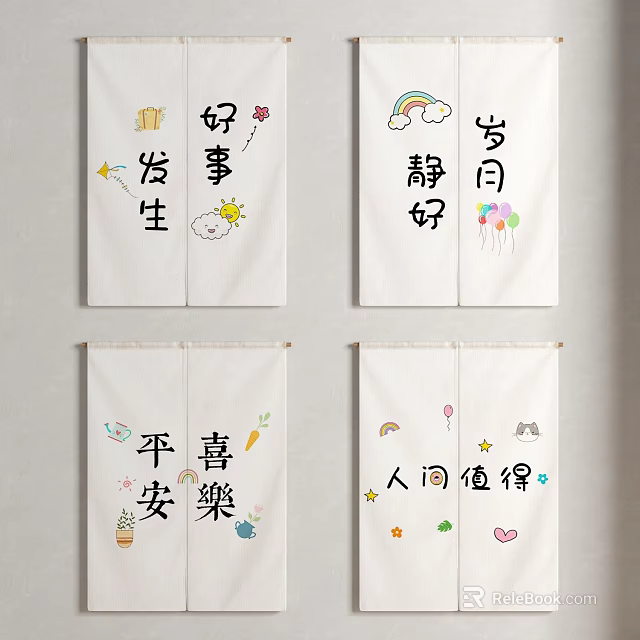 好事
发生
岁月
静好
平安
喜樂
人间值得
ReleBook.com